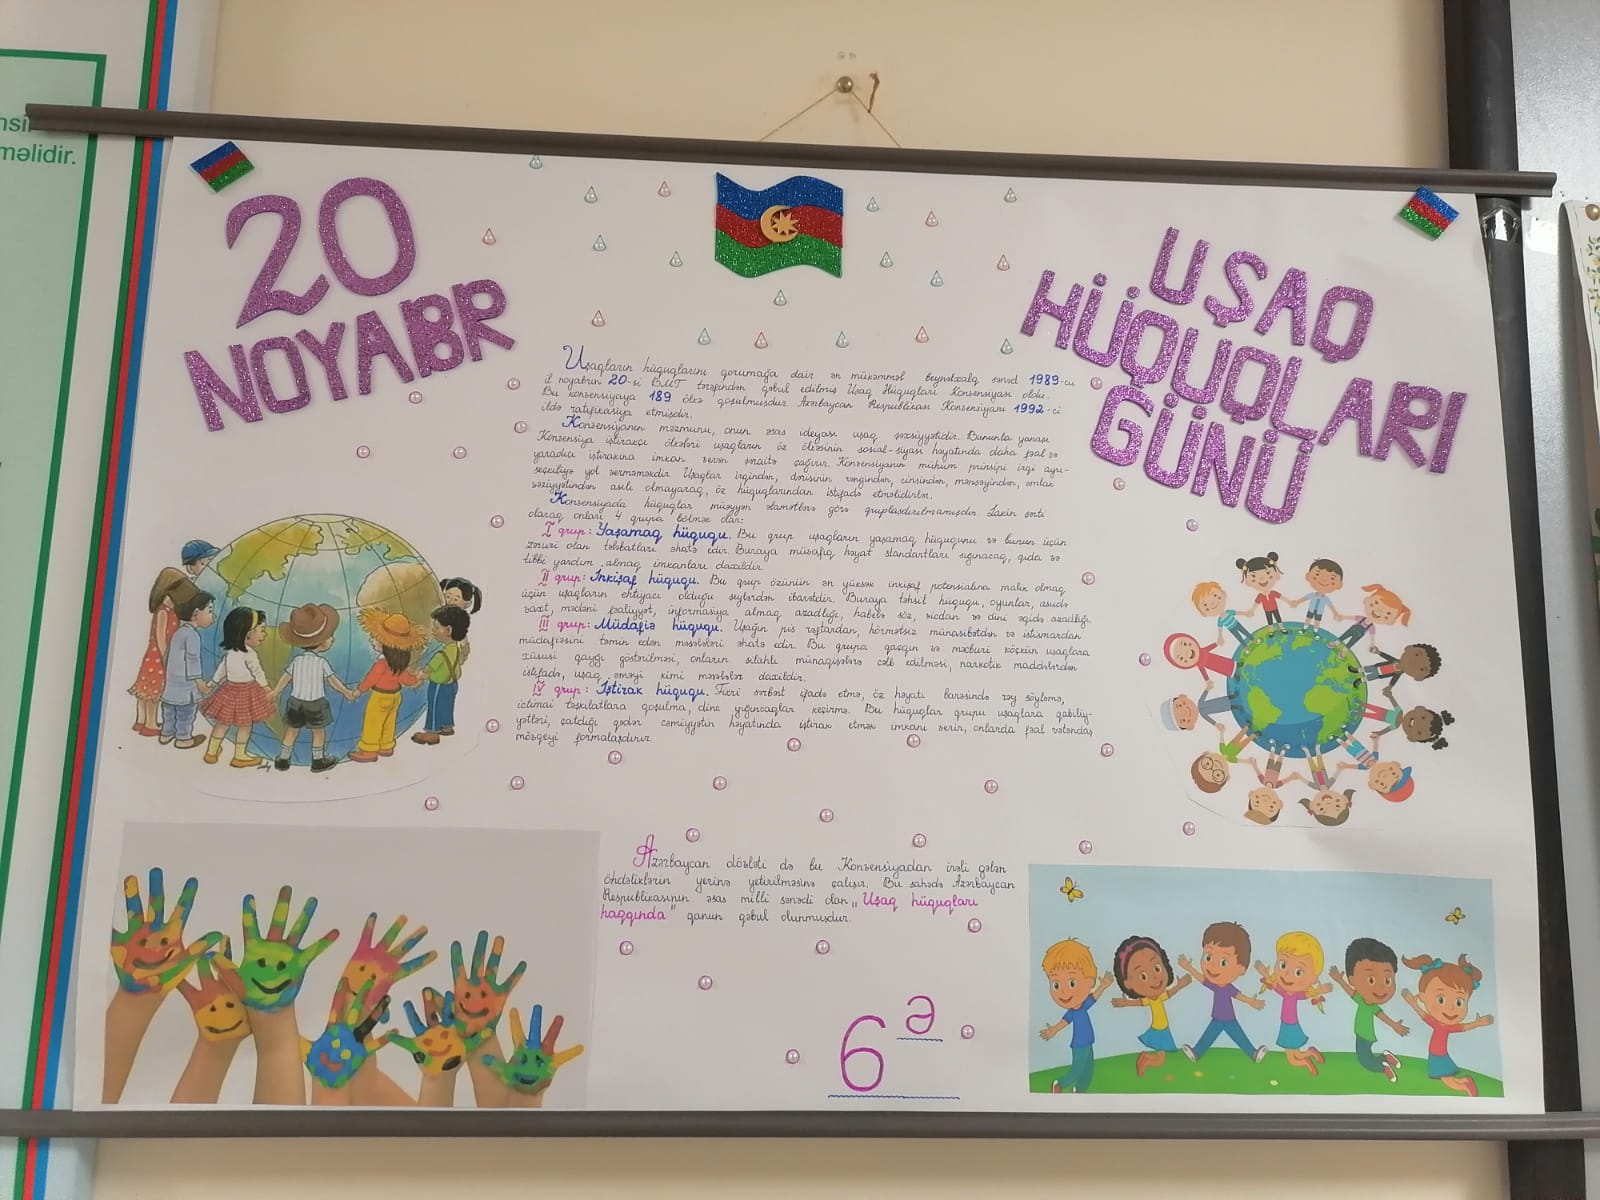 nsil
məlidir.
20
NOYABR
UŞAQ
HÜQUQLARI
GÜNÜ
Uşaqların hüquqlarını qorumağa dair ən mükəmməl beynəlxalq sənəd 1989-cu
il noyabrın 20-si BMT tərəfindən qəbul edilmiş Uşaq Hüquqları Konvensiyası oldu.
Bu konvensiyaya 189 ölkə qoşulmuşdur. Azərbaycan Respublikası Konvensiyanı 1992-ci
ildə ratifikasiya etmişdir.
Konvensiyanın məzmunu, onun əsas ideyası uşaq şəxsiyyətidir. Bununla yanaşı
Konvensiya iştirakçı ölkələri uşaqların öz ölkəsinin sosial-siyasi həyatında daha fəal və
yaradıcı iştirakına imkan verən şəraitə çağırır. Konvensiyanın mühüm prinsipi irqi ayrı-
seçkiliyə yol verməməkdir. Uşaqlar irqindən, dərisinin rəngindən, cinsindən, mənşəyindən, əmlak
vəziyyətindən asılı olmayaraq, öz hüquqlarından istifadə etməlidirlər.
Konvensiyada hüquqlar müəyyən əlamətlərə görə qruplaşdırılmamışdır. Lakin şərti
olaraq onları 4 qrupa bölmək olar:
I qrup: Yaşamaq hüququ. Bu qrup uşaqların yaşamaq hüququnu və bunun üçün
zəruri olan tələbatları əhatə edir. Buraya müvafiq həyat standartları sığınacaq, qida və
tibbi yardım almaq imkanları daxildir.
II qrup: İnkişaf hüququ. Bu qrup özünün ən yüksək inkişaf potensialına malik olmaq
üçün uşaqların ehtiyacı olduğu şeylərdən ibarətdir. Buraya təhsil hüququ, oyunlar, asudə
vaxt, mədəni fəaliyyət, informasiya almaq azadlığı, habelə söz, vicdan və dini əqidə azadlığı.
III qrup: Müdafiə hüququ. Uşağın pis rəftardan, hörmətsiz münasibətdən və istismardan
müdafiəsini təmin edən məsələləri əhatə edir. Bu qrupa qaçqın və məcburi köçkün uşaqlara
xüsusi qayğı göstərilməsi, onların silahlı münaqişələrə cəlb edilməsi, narkotik maddələrdən
istifadə, uşaq əməyi kimi məsələlər daxildir.
IV qrup: İştirak hüququ. Fikri sərbəst ifadə etmə, öz həyatı barəsində rəy söyləmə,
ictimai təşkilatlara qoşulma, dinc yığıncaqlar keçirmə. Bu hüquqlar qrupu uşaqlara qabiliy-
yətləri, çatdığı qədər cəmiyyətin həyatında iştirak etmək imkanı verir, onlarda fəal vətəndaş
mövqeyi formalaşdırır.
Azərbaycan dövləti də bu Konvensiyadan irəli gələn
öhdəliklərin yerinə yetirilməsinə çalışır. Bu sahədə Azərbaycan
Respublikasının əsas milli sənədi olan „Uşaq hüquqları
haqqında" qanun qəbul olunmuşdur.
6 ə